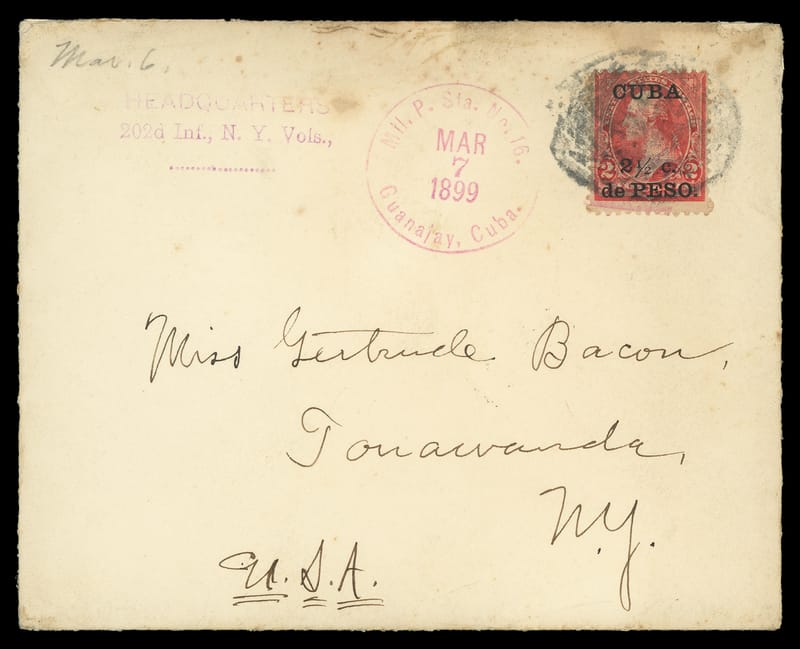 Mar. 6.
HEADQUARTERS
202d Inf., N. Y. Vols.,
Mil. P. Sta. No. 16.
MAR
7
1899
Guanajay, Cuba.
CUBA
2½ c.
2 2
de PESO.
Miss Gertrude Bacon,
Tonawanda,
N.Y.
U.S.A.